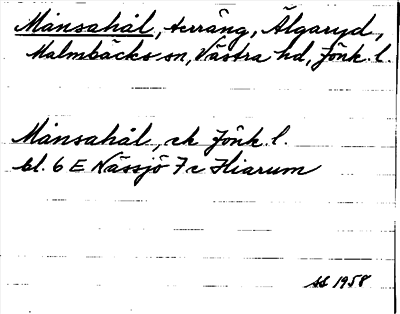 Månsahål, terräng, Älgaryd,
Malmbäcks sn, Västra hd, Jönk. l.
Månsahål, ek Jönk. l.
bl. 6 E Nässjö 7 c Hiarum
SS 1958